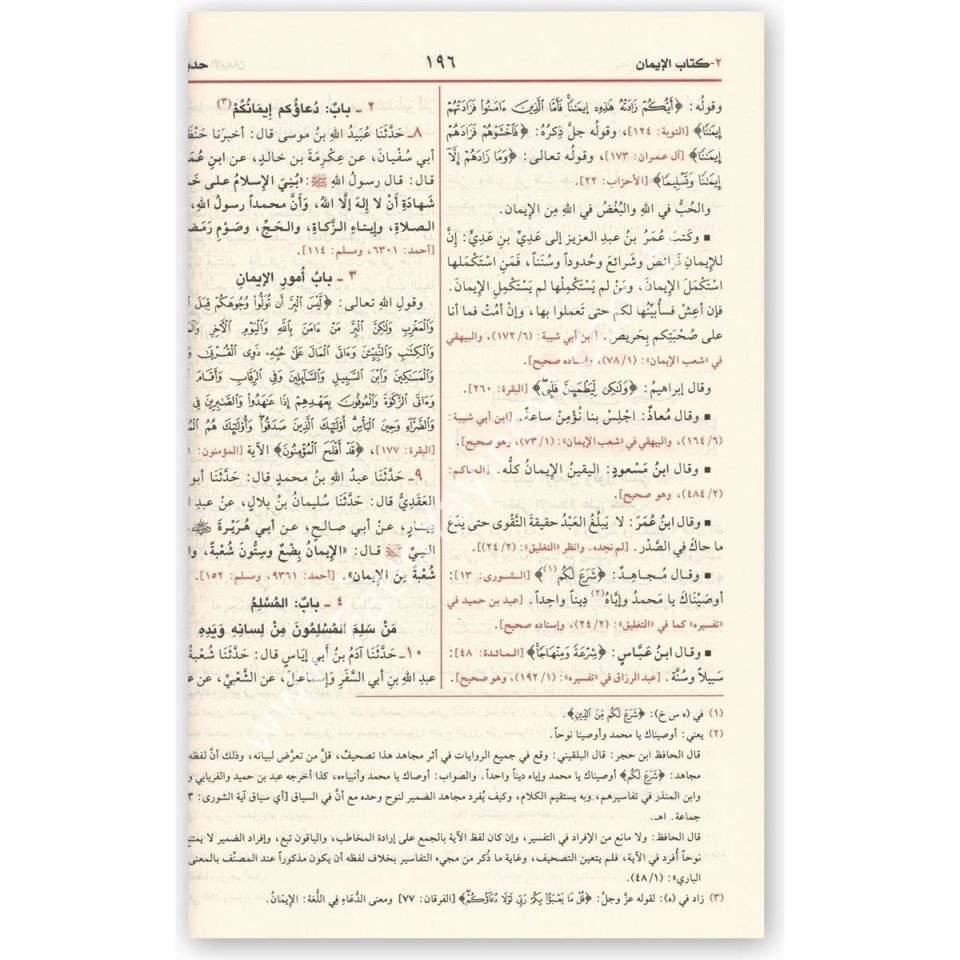 ٢-كتاب الإيمان
١٩٦
وقولُه: ﴿أَيُّكُمْ زَادَتْهُ هَٰذِهِۦٓ إِيمَٰنًاۚ فَأَمَّا ٱلَّذِينَ ءَامَنُوا۟ فَزَادَتْهُمْ
إِيمَٰنًا﴾ [التوبة: ١٢٤]، وقوله جلَّ ذِكرُه: ﴿فَٱخْشَوْهُمْ فَزَادَهُمْ
إِيمَٰنًا﴾ [آل عمران: ١٧٣]، وقولُه تعالى: ﴿وَمَا زَادَهُمْ إِلَّآ
إِيمَٰنًا وَتَسْلِيمًا﴾ [الأحزاب: ٢٢].
والحُبُّ في اللهِ والبُغْضُ في اللهِ مِن الإيمان.
■ وكَتبَ عُمَرُ بنُ عبدِ العزيز إلى عَدِيِّ بنِ عَدِيٍّ: إنَّ
للإيمانِ فَرائضَ وشَرائعَ وحُدوداً وسُنَناً، فَمَنِ اسْتَكْمَلها
اسْتَكْمَلَ الإيمانَ، ومَنْ لم يَسْتَكْمِلْها لم يَسْتَكْمِلِ الإيمانَ.
فإنْ أعِشْ فسأُبيِّنُها لكم حتى تَعملوا بها، وإنْ أمُتْ فما أنا
على صُحْبَتِكم بحَريصٍ. [ابن أبي شيبة: (١٧٢/٦)، والبيهقي
في «شعب الإيمان»: (٧٨/١)، وإسناده صحيح].
وقال إبراهيمُ: ﴿وَلَٰكِن لِّيَطْمَئِنَّ قَلْبِى﴾ [البقرة: ٢٦٠].
■ وقال مُعاذٌ: اجْلِسْ بنا نُؤمِنْ ساعةً. [ابن أبي شيبة:
(١٦٤/٦)، والبيهقي في «شعب الإيمان»: (٧٣/١)، وهو صحيح].
■ وقال ابنُ مَسْعودٍ: اليقينُ الإيمانُ كلُّه. [الحاكم:
(٤٨٤/٢)، وهو صحيح].
■ وقال ابنُ عُمَرَ: لا يَبلُغُ العَبْدُ حقيقةَ التَّقوى حتى يَدَعَ
ما حاكَ في الصَّدْر. [لم نجده. وانظر «التغليق»: (٢٤/٢)].
■ وقال مُجاهدٌ: ﴿شَرَعَ لَكُم﴾(١) [الشورى: ١٣]:
أَوصَيْناكَ يا محمدُ وإيَّاه(٢) دِيناً واحداً. [عبد بن حميد في
«تفسيره» كما في «التغليق»: (٢٤/٢)، وإسناده صحيح].
■ وقال ابنُ عَبَّاسٍ: ﴿شِرْعَةً وَمِنْهَاجًا﴾ [المائدة: ٤٨]:
سَبيلاً وسُنَّة. [عبد الرزاق في «تفسيره»: (١٩٢/١)، وهو صحيح].
٢ ـ بابٌ: دُعاؤُكم إيمَانُكُمْ(٣)
٨ـ حَدَّثَنا عُبَيدُ اللهِ بنُ موسى قال: أخبرَنا
أبي سُفْيانَ، عن عِكْرِمَةَ بنِ خالدٍ، عن ابنِ
قال: قال رسولُ اللهِ ﷺ: «بُنِيَ الإسلامُ على
شَهادَةِ أنْ لا إلهَ إلَّا اللهُ، وَأنَّ محمداً رسولُ اللهِ،
الصلاةِ، وإيتاءِ الزَّكاةِ، والحَجِّ، وصَوْمِ
[أحمد: ٦٣٠١، ومسلم: ١١٤].
٣ ـ بابُ أمورِ الإيمانِ
وقولِ اللهِ تعالى: ﴿لَّيْسَ ٱلْبِرَّ أَن تُوَلُّوا۟ وُجُوهَكُمْ قِبَلَ
وَٱلْمَغْرِبِ وَلَٰكِنَّ ٱلْبِرَّ مَنْ ءَامَنَ بِٱللَّهِ وَٱلْيَوْمِ ٱلْءَاخِرِ
وَٱلْكِتَٰبِ وَٱلنَّبِيِّۦنَ وَءَاتَى ٱلْمَالَ عَلَىٰ حُبِّهِۦ ذَوِى ٱلْقُرْبَىٰ
وَٱلْمَسَٰكِينَ وَٱبْنَ ٱلسَّبِيلِ وَٱلسَّآئِلِينَ وَفِى ٱلرِّقَابِ وَأَقَامَ
وَءَاتَى ٱلزَّكَوٰةَ وَٱلْمُوفُونَ بِعَهْدِهِمْ إِذَا عَٰهَدُوا۟ وَٱلصَّٰبِرِينَ فِى
وَٱلضَّرَّآءِ وَحِينَ ٱلْبَأْسِ أُو۟لَٰٓئِكَ ٱلَّذِينَ صَدَقُوا۟ وَأُو۟لَٰٓئِكَ هُمُ
[البقرة: ١٧٧]، ﴿قَدْ أَفْلَحَ ٱلْمُؤْمِنُونَ﴾ الآية [المؤمنون:
٩ـ حَدَّثَنا عبدُ اللهِ بنُ محمدٍ قال: حَدَّثَنا أبو
العَقَديُّ قال: حَدَّثَنا سُليمانُ بنُ بلالٍ، عن عبدِ
دِينارٍ، عن أبي صالحٍ، عن أبي هُرَيْرةَ
النبيِّ ﷺ قال: «الإيمانُ بِضْعٌ وسِتُّونَ شُعْبةً،
شُعْبةٌ مِنَ الإيمانِ». [أحمد: ٩٣٦١، ومسلم: ١٥٢].
٤ ـ بابٌ: المُسْلِمُ
مَنْ سَلِمَ المُسْلِمُونَ مِنْ لِسانِهِ ويَدِهِ
١٠ـ حَدَّثَنا آدَمُ بنُ أبي إياسٍ قال: حَدَّثَنا شُعْبةُ
عبدِ اللهِ بنِ أبي السَّفَرِ وإسماعلَ، عن الشَّعْبيِّ، عن
(١) في (ه س خ): ﴿شَرَعَ لَكُم مِّنَ ٱلدِّينِ﴾.
(٢) يعني: أوصيناك يا محمد وأوصينا نوحاً.
قال الحافظ ابن حجر: قال البلقيني: وقع في جميع الروايات في أثر مجاهد هذا تصحيف، قلَّ من تعرَّض لبيانه، وذلك أنَّ لفظه
مجاهد: ﴿شَرَعَ لَكُم﴾ أوصيناك يا محمد وإياه ديناً واحداً. والصواب: أوصاك يا محمد وأنبياءه، كذا أخرجه عبد بن حميد والفريابي و
وابن المنذر في تفاسيرهم، وبه يستقيم الكلام، وكيف يُفرد مجاهد الضمير لنوح وحده مع أنَّ في السياق [أي سياق آية الشورى: ٣
جماعة. اهـ.
قال الحافظ: ولا مانع من الإفراد في التفسير، وإن كان لفظ الآية بالجمع على إرادة المخاطب، والباقون تبع، وإفراد الضمير لا
نوحاً أُفرد في الآية، فلم يتعين التصحيف، وغاية ما ذُكر من مجيء التفاسير بخلاف لفظه أن يكون مذكوراً عند المصنِّف بالمعنى
الباري»: (٤٨/١).
(٣) زاد في (ه): لقوله عزَّ وجلَّ: ﴿قُلْ مَا يَعْبَؤُا۟ بِكُمْ رَبِّى لَوْلَا دُعَآؤُكُمْ﴾ [الفرقان: ٧٧] ومعنى الدُّعَاءِ فِي اللُّغة: الإيمَانُ.